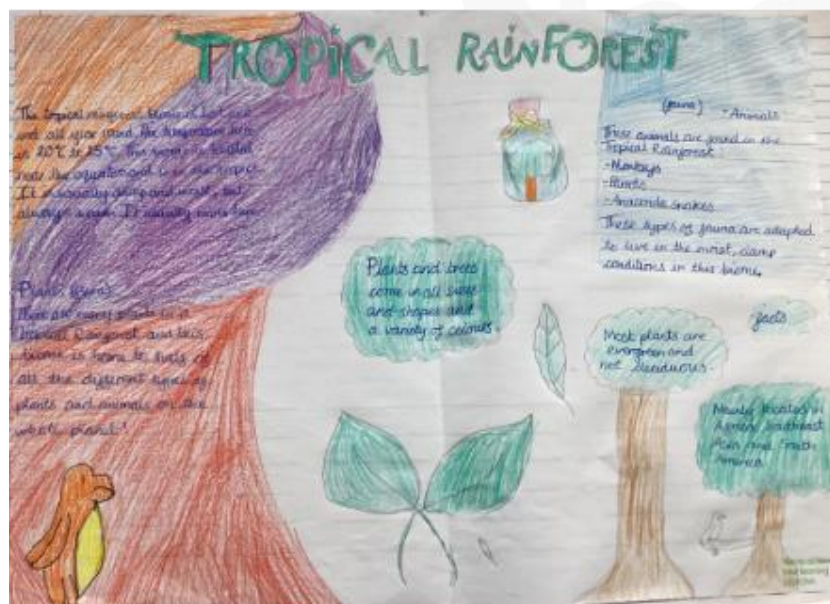 TROPICAL RAINFOREST
The tropical biome is hot and
wet all year round. The temperature here
is 20°C to 25°C. This biome is located
near the equator and is in the tropics.
It is usually damp and moist, but
always warm. It usually
Plants
There are many plants in a
Tropical Rainforest and this
biome is home to
all the different types of
plants and animals on the
whole planet!
Plants and trees
come in all sizes
and shapes and
a variety of colours.
(fauna) - Animals
These animals are found in the
Tropical Rainforest:
-Monkeys
-Parrots
-Anaconda snakes
These types of fauna are adapted
to live in the moist, damp
conditions in this biome.
facts
Most plants are
evergreen and
not deciduous.
located in
Southeast
Asia and South
America